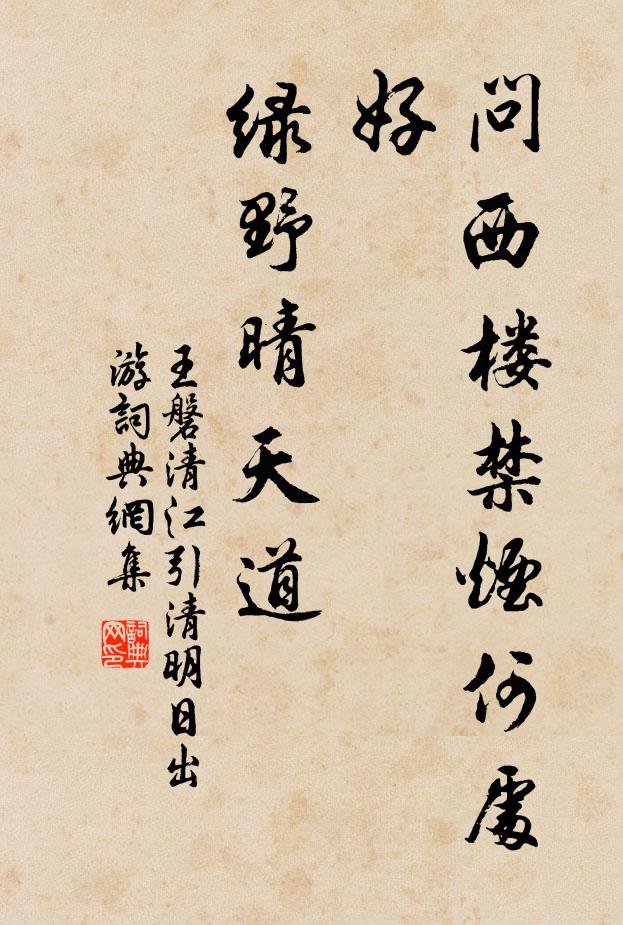 问西楼禁煙何處
好
绿野晴天道
王磐清江引清明日出
游詞典網集
詞典
网印